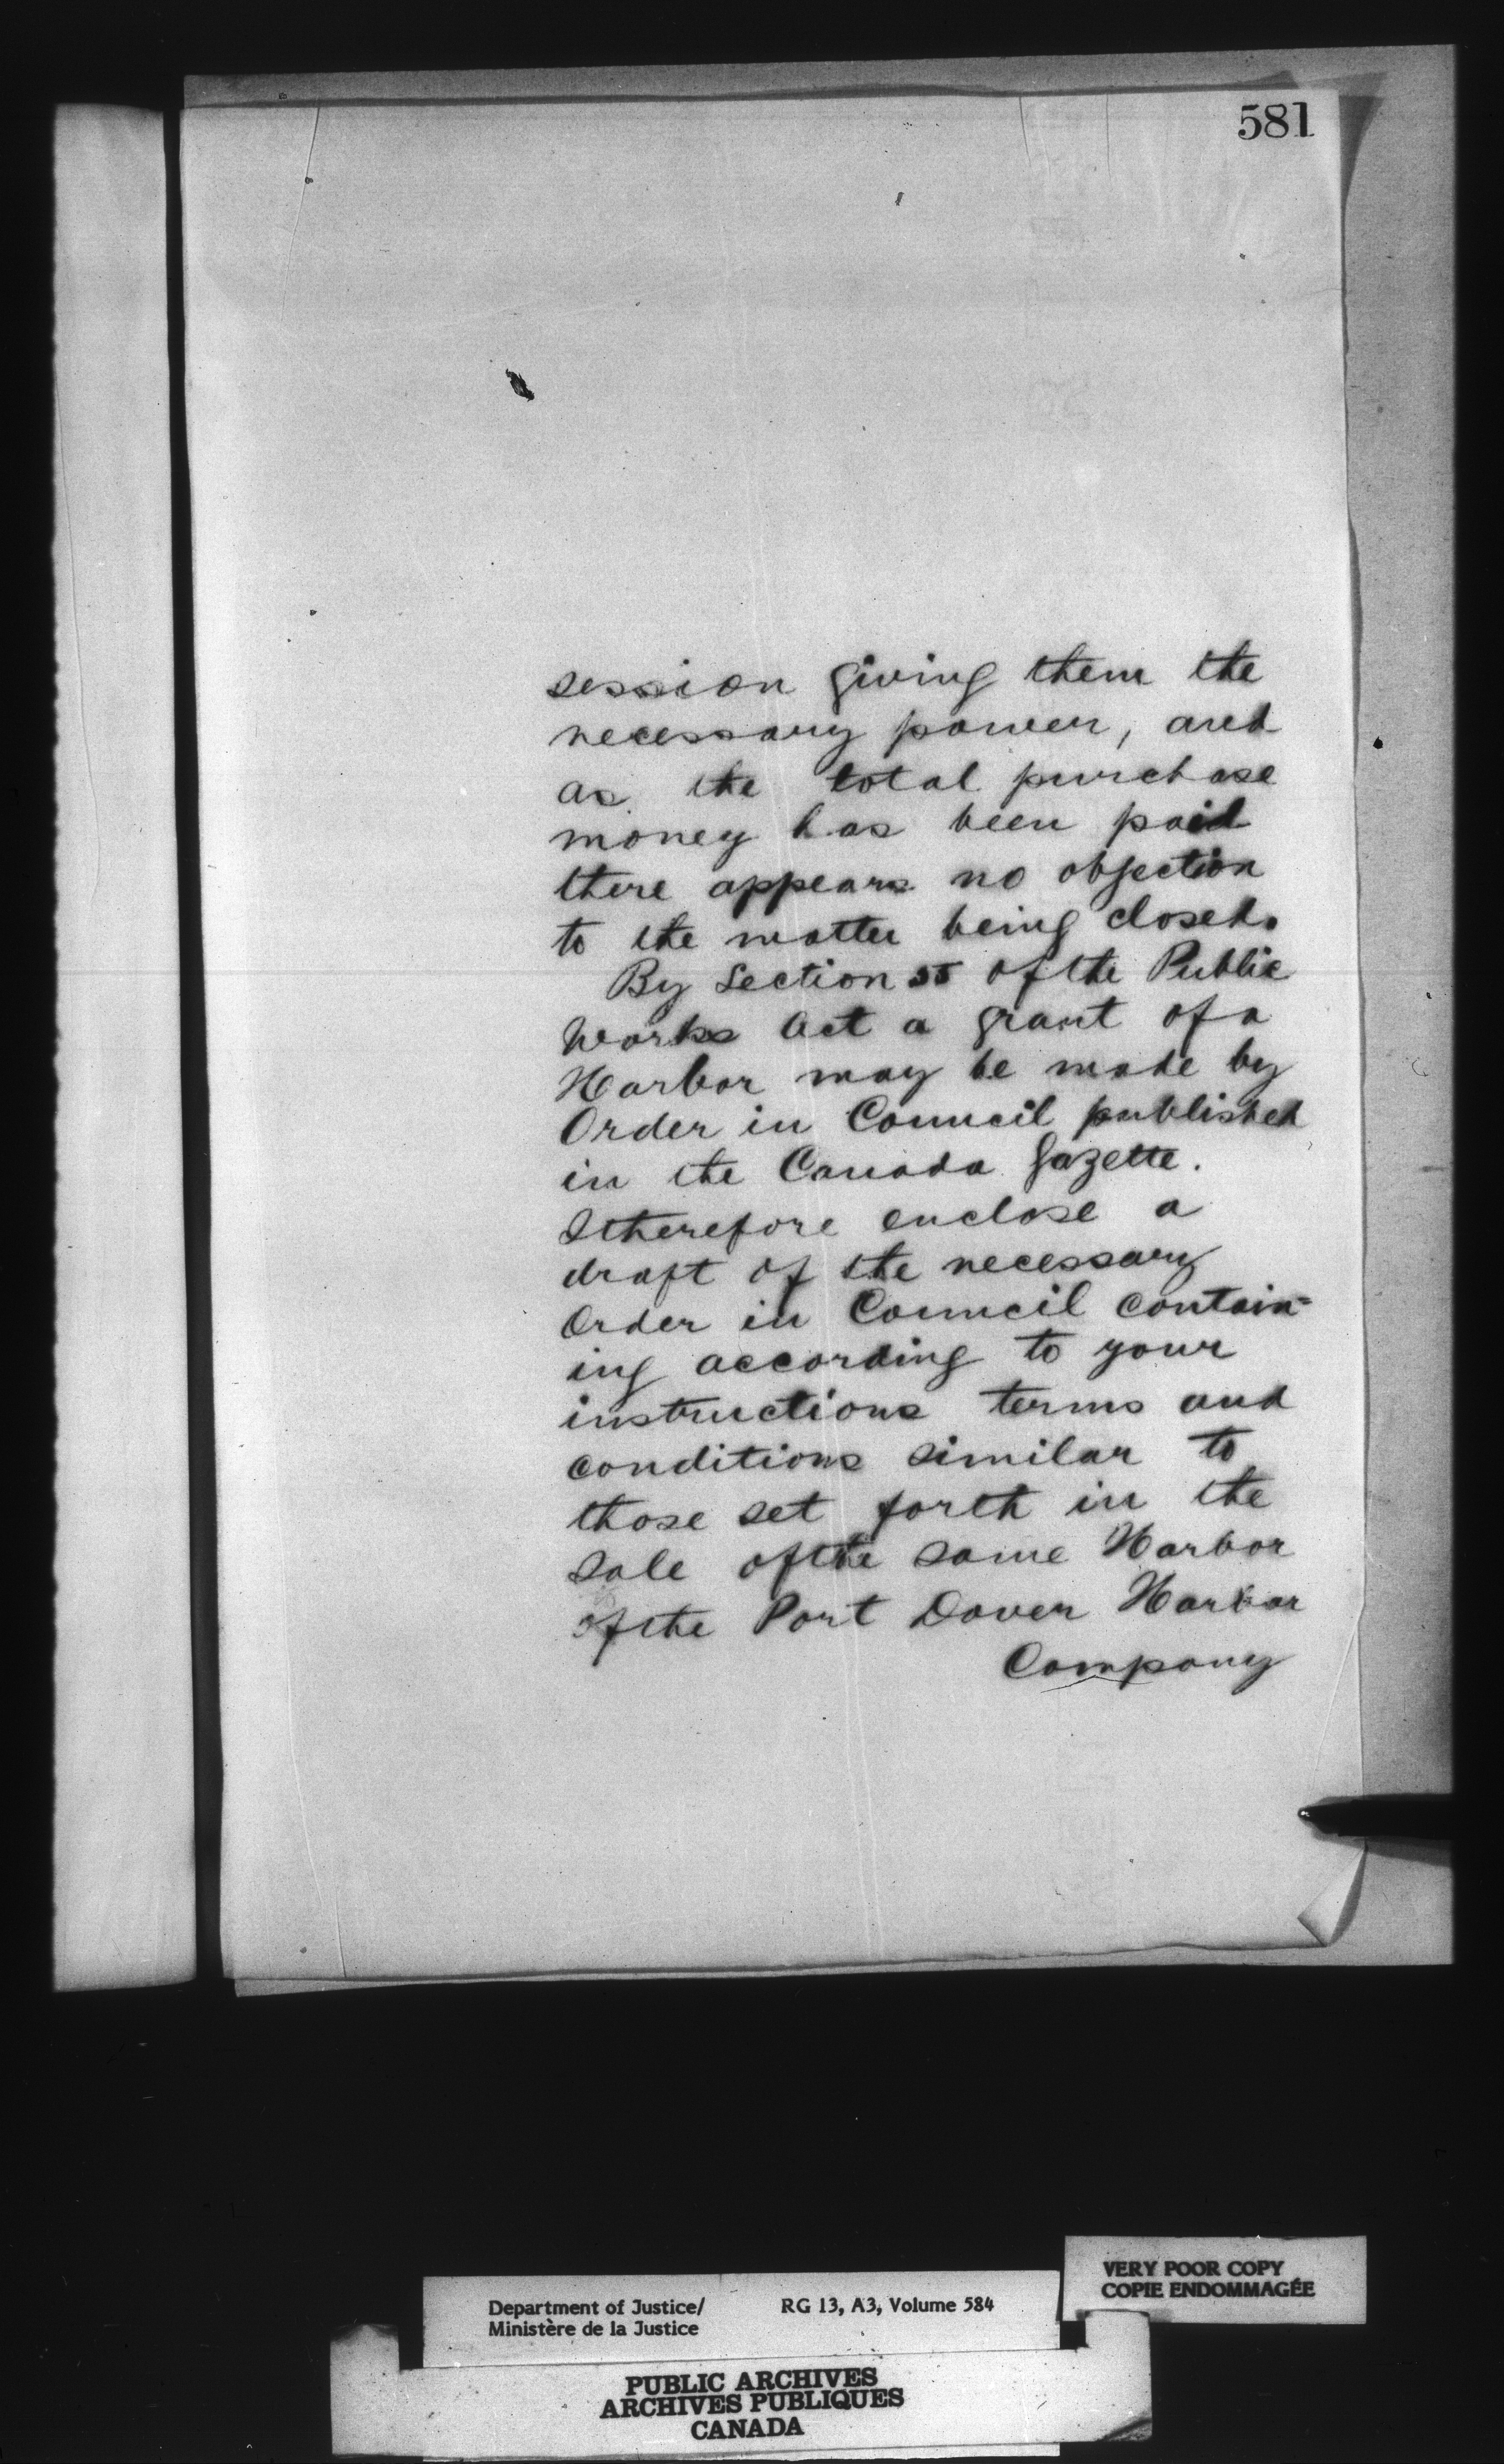 581
session giving them the
necessary power, and
as the total purchase
money has been paid
there appears no objection
to the matter being closed.
By Section 55 of the Public
Works Act a grant of a
Harbor may be made by
Order in Council published
in the Canada Gazette.
I therefore enclose a
draft of the necessary
Order in Council contain=
ing according to your
instructions terms and
conditions similar to
those set forth in the
Sale of the same Harbor
of the Port Dover Harbor
Company
VERY POOR COPY
COPIE ENDOMMAGÉE
Department of Justice/ RG 13, A3, Volume 584
Ministère de la Justice
PUBLIC ARCHIVES
ARCHIVES PUBLIQUES
CANADA